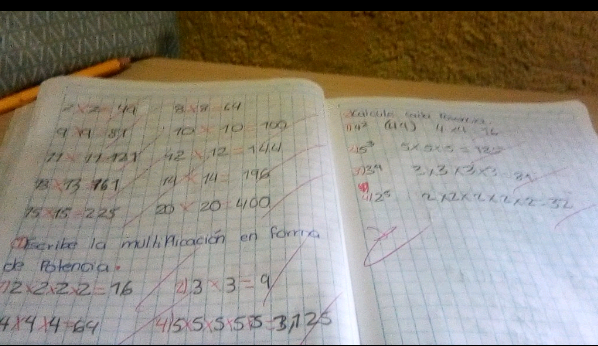 7 x 7 = 49 8 x 8 = 64
9 x 9 = 81 10 x 10 = 100
11 x 11 = 121 12 x 12 = 144
13 x 13 = 169 14 x 14 = 196
15 x 15 = 225 20 x 20 = 400
Escribe la multiplicación en forma
de Potencia.
1) 2 x 2 x 2 x 2 = 16 2) 3 x 3 = 9
4 x 4 x 4 = 64 4) 5 x 5 x 5 x 5 x 5 = 3,125
Calcula cada Potencia.
1) 4² (4 4) 4 x 4 = 16
2) 5³ 5 x 5 x 5 = 125
3) 3⁴ 3 x 3 x 3 x 3 = 81
4) 2⁵ 2 x 2 x 2 x 2 x 2 = 32